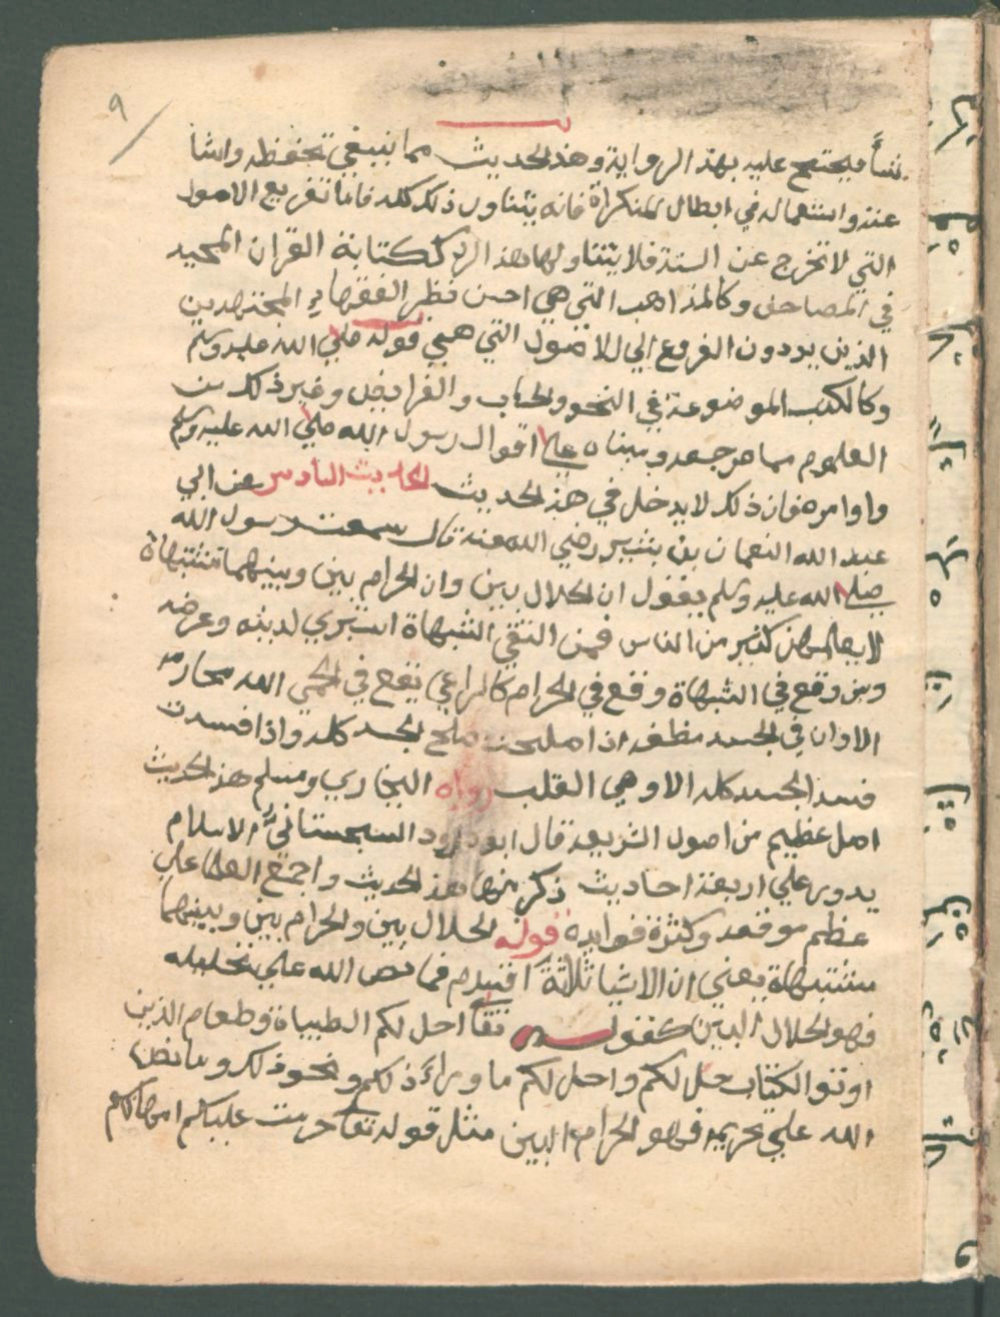 ٩
شأ فيحتج عليه بهذه الرواية وهذ الحديث مما ينبغي تحفظه واشا
عته واستعماله في ابطال المنكراة فانه يتناول ذلك كله فاما تفريع الاصول
التي لا تخرج عن السنة فلا يتناولها هذا الرد ككتابة القران المجيد
في المصاحف وكالمذاهب التي هي احسن نظر الفقهاء المجتهدين
الذين يردون الفروع الي للاصول التي هي قوله صلي الله عليه وسلم
وكالكتب الموضوعة في النحو والحساب والفرايض وغير ذلك من
العلوم مما مرجعه ومبناه علي اقوال رسول الله صلي الله عليه وسلم
واوامره فان ذلك لا يدخل في هذ الحديث الحديث السادس عن ابي
عبد الله النعمان بن بشير رضي الله عنه قال سمعت رسول الله
صلي الله عليه وسلم يقول ان الحلال بين وان الحرام بين وبينهما مشتبهاة
لا يعلمهن كثير من الناس فمن اتقي الشبهاة استبري لدينه وعرضه
ومن وقع في الشبهاة وقع في الحرام كالراعي يقع في الحمي الله محارمه
الا وان في الجسد مظغه اذا صلحت صلح الجسد كله واذا فسدت
فسد الجسد كله الا وهي القلب رواه البخاري ومسلم هذ الحديث
اصل عظيم من اصول الشريعه قال ابو داود السجستاني الاسلام
يدور علي اربعة احاديث ذكر منها هذ الحديث واجمع العلما علي
عظم موقعه وكثرة فوايده قوله الحلال بين والحرام بين وبينهما
مشتبهاة يعني ان الاشيا ثلاثة اقسام فما نص الله علي تحليله
فهو الحلال البين كقوله تعا احل لكم الطيباة وطعام الذين
اوتو الكتاب حل لكم واحل لكم ما وراء ذلكم ونحو ذلك وما نص
الله علي تحريمه فهو الحرام البين مثل قوله تعا حرمت عليكم امهاتكم